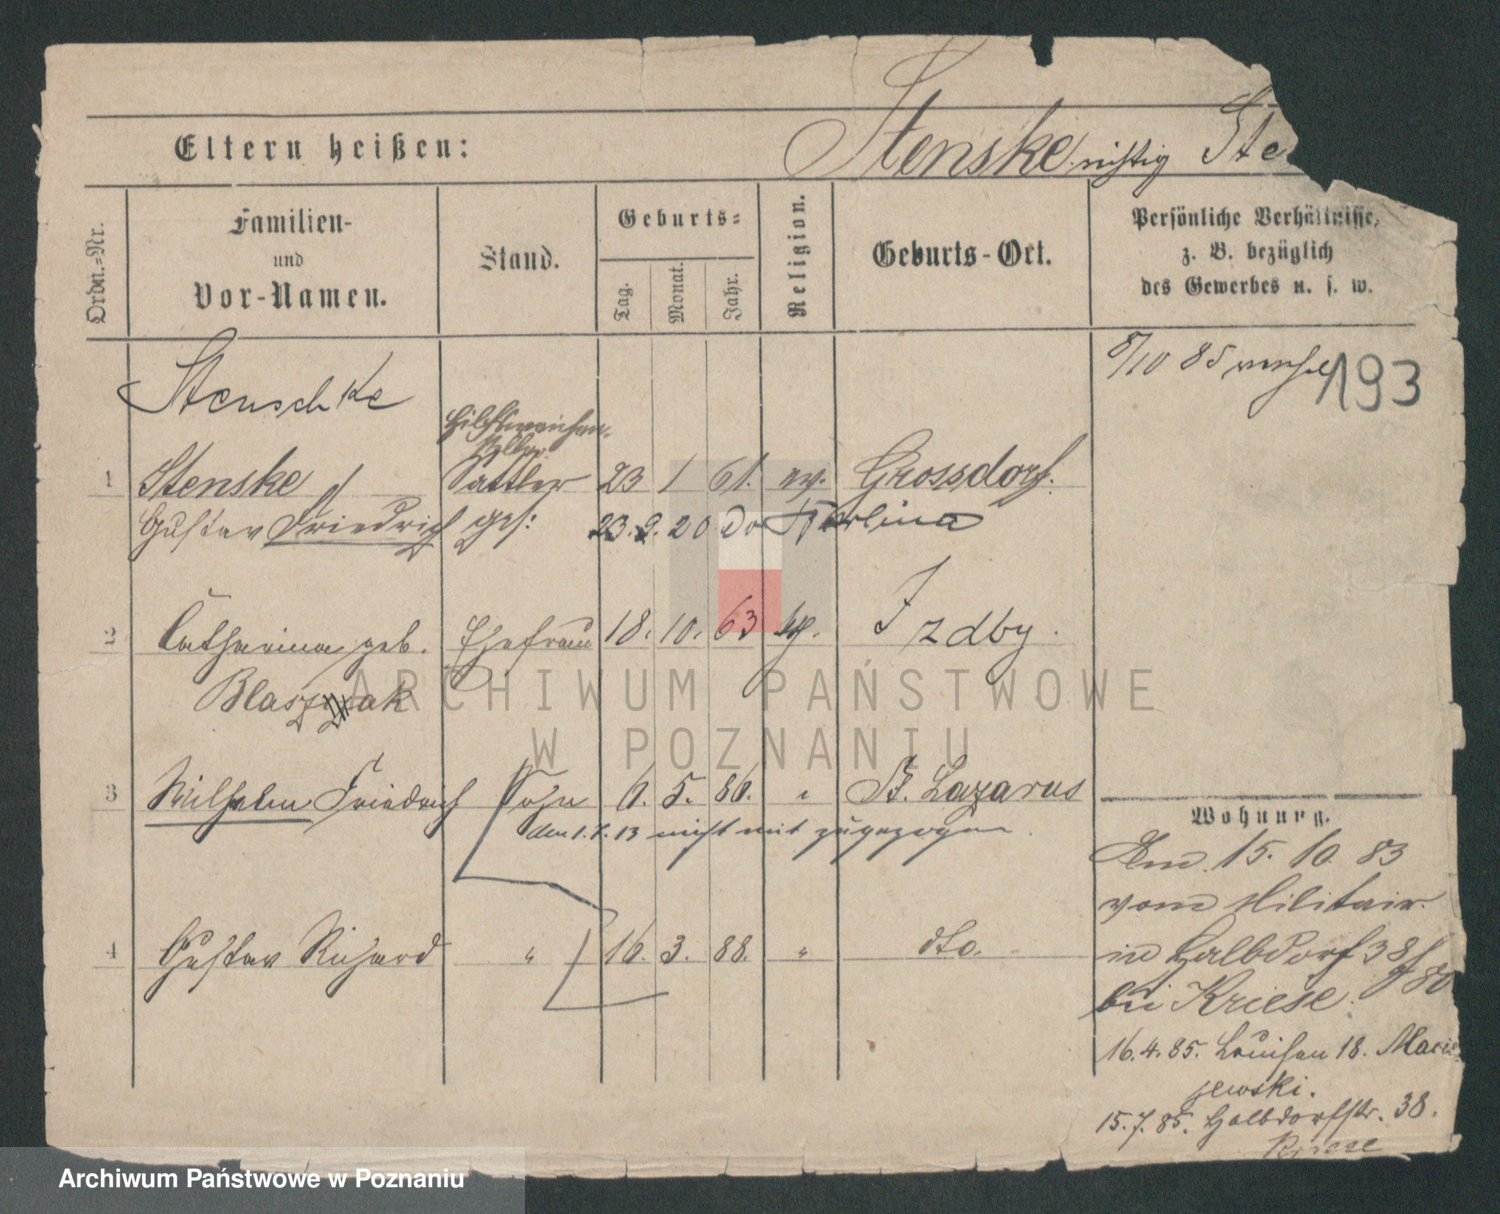 Eltern heißen:
Stenske richtig Ste
Ordn.-Nr.
Familien-
und
Vor-Namen.
Stand.
Geburts-
Tag.
Monat.
Jahr.
Religion.
Geburts-Ort.
Persönliche Verhältnisse,
z. B. bezüglich
des Gewerbes u. s. w.
8/10 85
193
Stenschke
Hilfsweichen-
steller
1 Stenske Sattler 23 1 61. ev. Grossdorf.
Gustav Friedrich gest: 23.9.20 Do
2 Catharina geb. Ehefrau 18. 10. 63 k. Izdby.
Blaszak
3 Wilhelm Friedrich Sohn 6. 5. 86. " St. Lazarus
den 1.1.13 nicht mit zugezogen.
4 Gustav Richard " 16. 3. 88. " dto.
Wohnung.
Am 15. 10. 83
vom Militair
in Halbdorf 38
bei Kriese.
16.4.85. Louisen 18. Macie
jewski.
15.7.85. Halbdorfstr. 38.
Kriese
ARCHIWUM PAŃSTWOWE
W POZNANIU
Archiwum Państwowe w Poznaniu